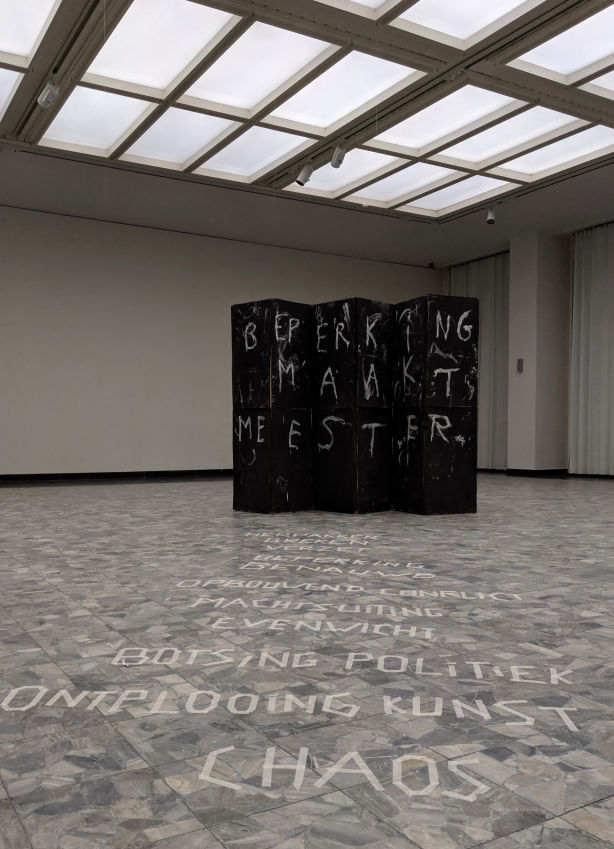 BEPERKING
MAAKT
MEESTER
VERZET
BEPERKING
BENAUWD
OPBOUWEND CONFLICT
MACHTSUITING
EVENWICHT
BOTSING POLITIEK
ONTPLOOIING KUNST
CHAOS